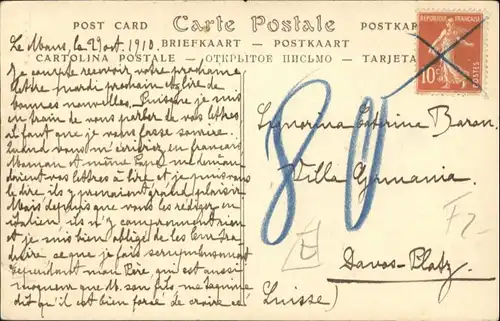 POST CARD Carte Postale POSTKAR
BRIEFKAART — POSTKAART
CARTOLINA POSTALE — ОТКРЫТОЕ ПИСЬМО — TARJETA
RÉPUBLIQUE FRANÇAISE
10c
POSTES
Le Mans, le 29 oct. 1910.
Je compte recevoir votre prochaine
lettre mardi prochain
bonnes nouvelles. Puisque je suis
en train de vous parler de vos lettres
il faut que je vous fasse sourire.
Quand vous m'écriviez en français
Maman et même Papa me deman-
daient vos lettres à lire et je puis vous
le dire ils y prenaient grand plaisir
Mais depuis que vous les rédigez en
italien ils n'y comprennent rien
et je suis bien obligé de les leur tra-
duire ce que je fais scrupuleusement
cependant mon Père, qui est aussi
moqueur que M. son fils, me taquine
dit qu'il est bien forcé de croire ce
80
Signorina Caterina Baron.
Villa Germania.
Davos-Platz.
Suisse)
F2-